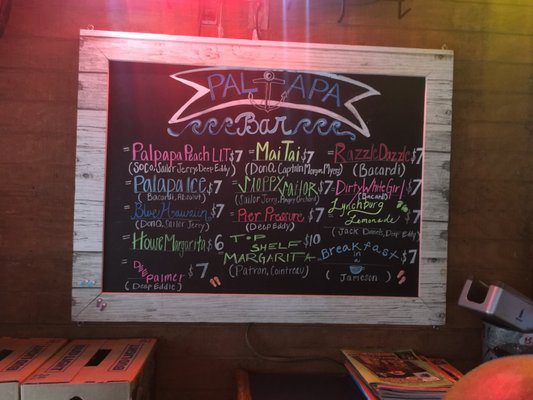 PAL APA
Bar
Palpapa Peach LIT $7
(SoCo, Sailor Jerry, Deep Eddy)
Palapa Ice $7
(Bacardi, Absolut)
Blue Hawaiian $7
(DonQ, Sailor Jerry)
House Margarita $6
Palmer $7
(Deep Eddie)
Mai Tai $7
(DonQ, Captain Morgan, Myers)
Sloppy Sailor $7
(Sailor Jerry, Angry Orchard)
Pier Pressure $7
(Deep Eddy)
TOP $10
SHELF
MARGARITA
(Patron, Cointreau)
Razzle Dazzle $7
(Bacardi)
Dirty White Girl $7
(Bacardi)
Lynchburg $7
Lemonade
(Jack Daniels, Deep Eddy)
Breakfast $7
in a
(Jameson)